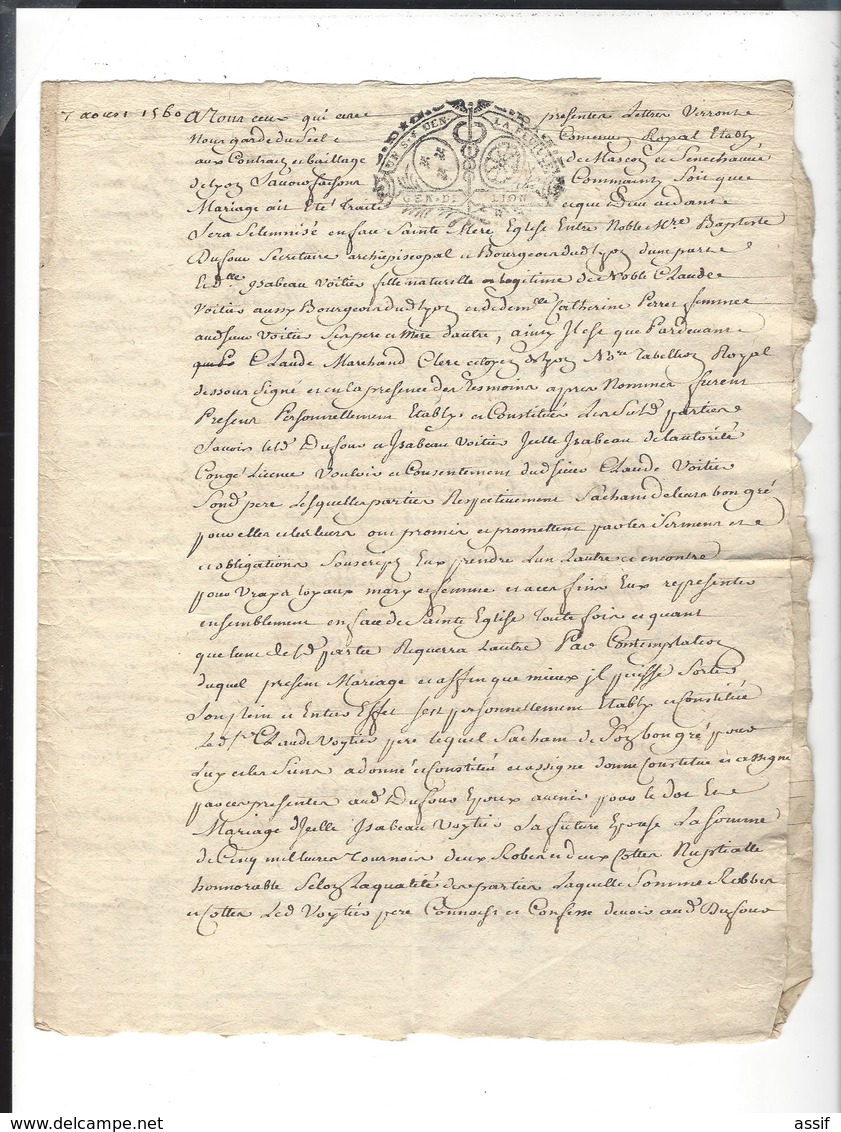 7 aoust 1560 A Tous ceux qui ces presentes Lettres Verront
Nous garde du Seel Commun Royal Etably
aux Contracts et baillage de Mascon et Senechaucée
de Lyon Savoir faisons Comme ainsy Soit que
Mariage ait Eté traité et que Dieu aidant
UN S. SIX DEN. LA FEUILLE
GEN. DE LION
Sera Solemnisé en face Sainte Mere Eglise Entre Noble Mre Baptiste
Dufour Secretaire archiepiscopal et Bourgeois dud Lyon d'une part
Et dlle Ysabeau Voitier fille naturelle et legitime de Noble Claude
Voitier aussy Bourgeois dud Lyon et de demlle Catherine Perret femme
aud sieur Voitier Ses pere et Mere d'autre, ainsy Il est que Pardevant
Claude Marchand Clerc citoyen de Lyon Nre Tabellion Royal
dessous Signé et en la presence des Tesmoins apres Nommés furent
Present Personnellement Etablys et Constitués Les Susd parties
Savoir led Dufour et Isabeau Voitier Icelle Isabeau de l'autorité
Congé Licence Vouloir et Consentement dud sieur Claude Voitier
Sond pere Lesquelles parties Respectivement Sachant de leurs bon gré
pour elles et les leurs ont promis et promettent par les Sermens et
et obligations Souscrips Eux prendre L'un L'autre et encontre
pour Vrays loyaux mary et femme et a ces fins Eux representer
ensemblement en face de Sainte Eglise Toute fois et quant
que l'une desd partie Requerra L'autre Par Contemplation
duquel present Mariage et affin que mieux il puisse Sortir
Son plein et Entier Effet s'est personnellement Etably et Constitué
Led Sr Claude Voytier pere lequel Sachant de Son bon gré pour
Luy et les Siens a donné et Constitué et assigne donne Constitue et assigne
par ces presentes aud Dufour Epoux avenir pour le dot Et
Mariage d'Icelle Isabeau Voytier La future Epouse La Somme
de Cinq mil livres Tournois deux Robes et deux Cottes Nuptialle
honorable Selon La qualité des parties Laquelle Somme Robbes
et Cottes Led Voytier pere Connoist et Confesse devoir aud Dufour
assif